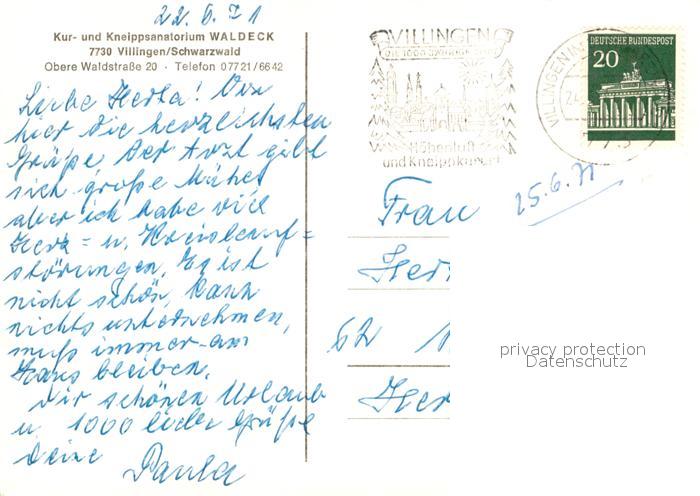 22.6.71
Kur- und Kneippsanatorium WALDECK
7730 Villingen/Schwarzwald
Obere Waldstraße 20 · Telefon 07721/6642
Liebe Herta! Von
hier die herzlichsten
Grüße. Der Arzt gibt
sich große Mühe,
aber ich habe viel
Herz- u. Kreislauf=
störungen. Es ist
nicht schön, kann
nichts unternehmen,
muß immer am
Haus bleiben.
Dir schönen Urlaub
u. 1000 liebe Grüße
deine
Paula
VILLINGEN
DIE 1000 JÄHRIGE
Höhenluft-
und Kneippkurort
VILLINGEN IM
DEUTSCHE BUNDESPOST
20
Frau
25.6.71
Her
62
Her
privacy protection
Datenschutz